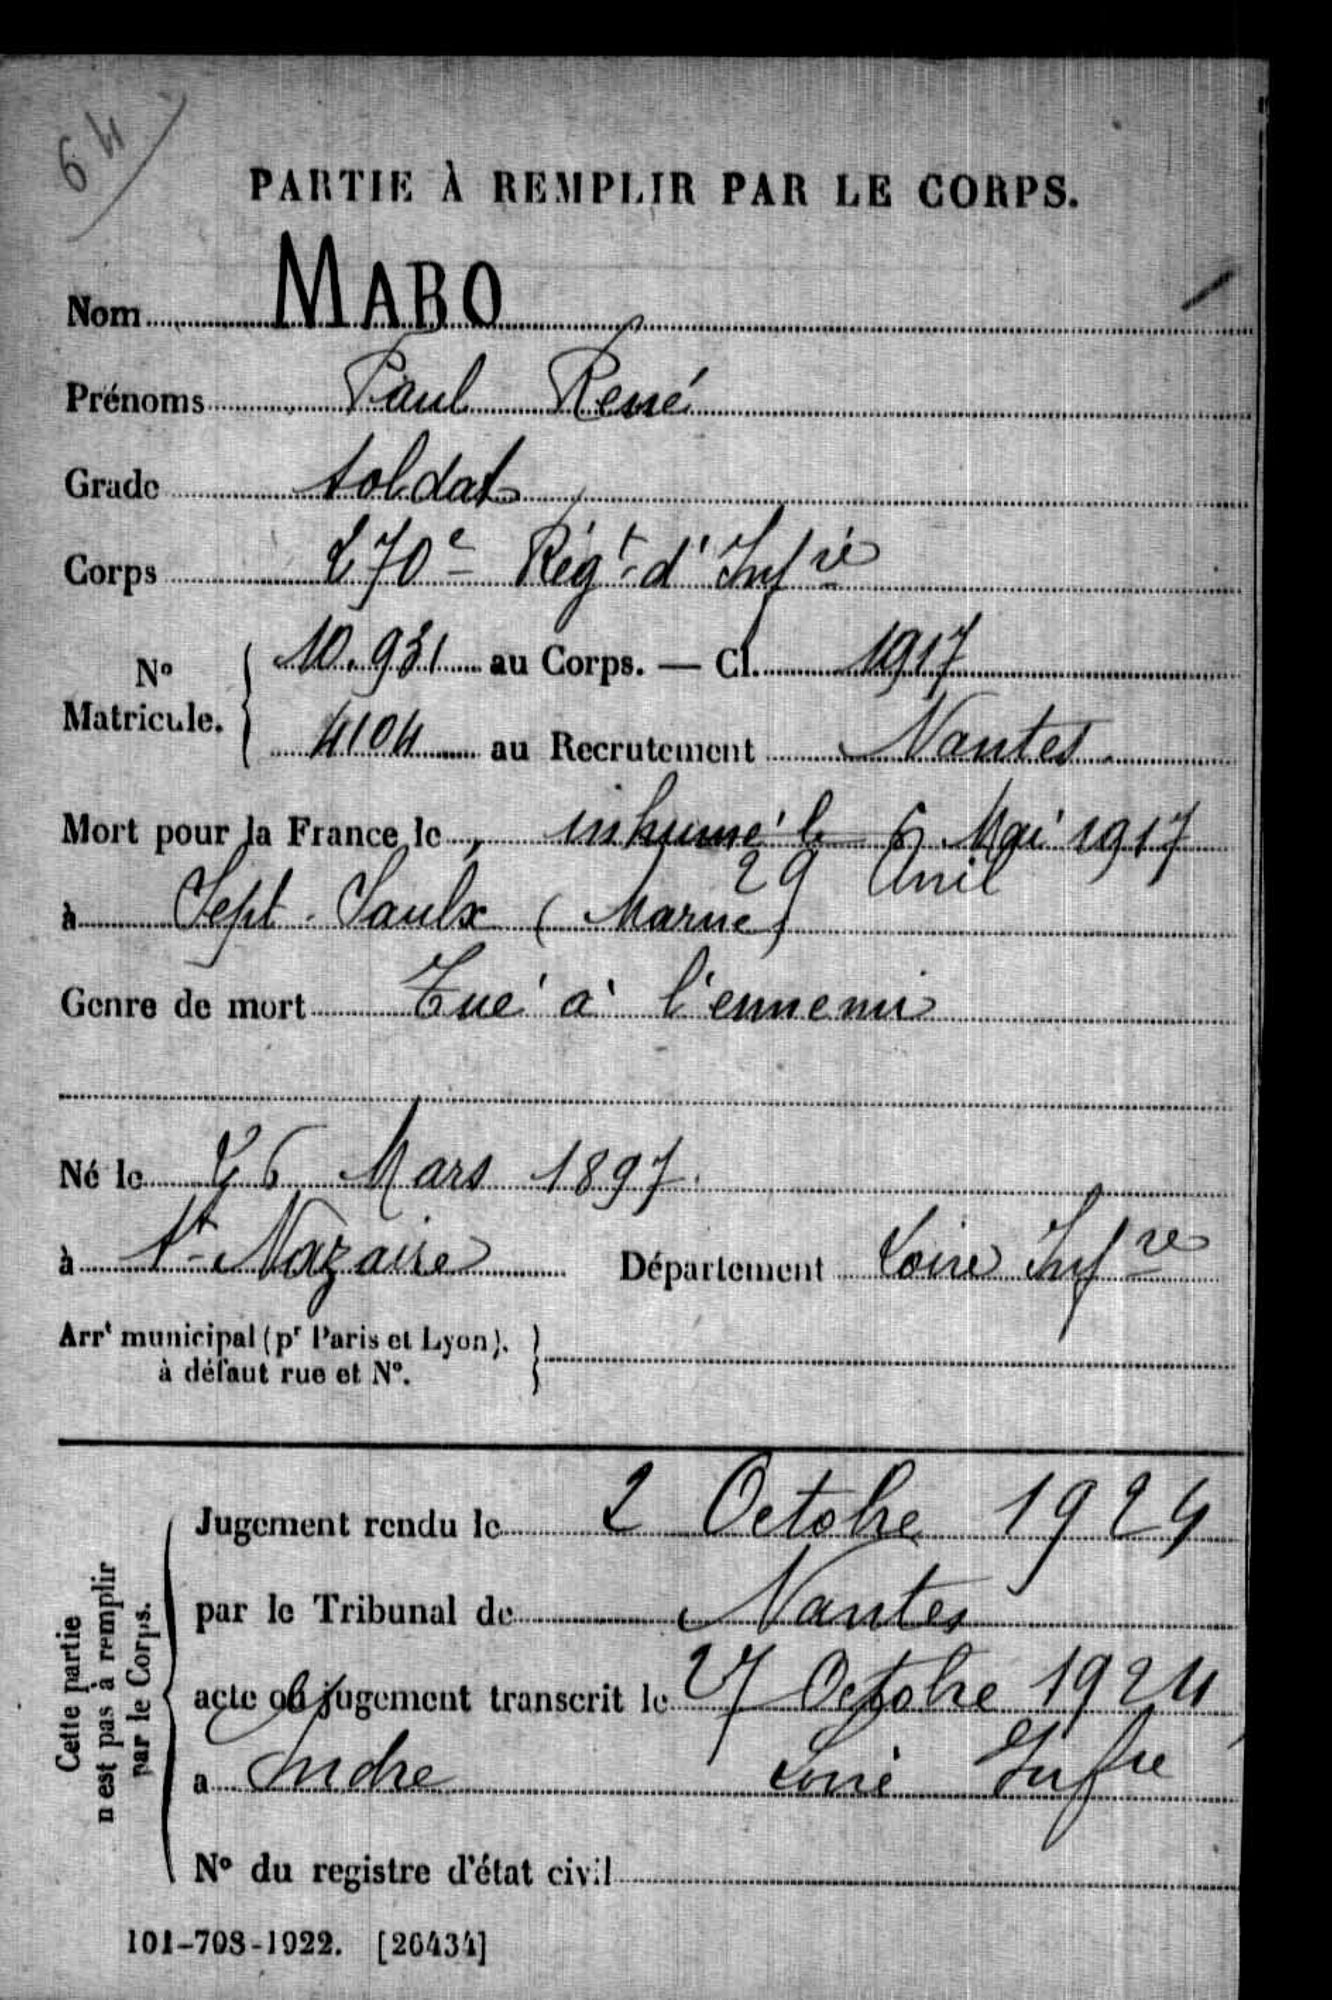 64
PARTIE À REMPLIR PAR LE CORPS.
Nom MABO
Prénoms Paul René
Grade soldat
Corps 270e Régt d'Infrie
No Matricule. 10.931 au Corps. — Cl. 1917
4104 au Recrutement Nantes
Mort pour la France le inhumé le 6 Mai 1917
29 Avril
à Sept-Saulx (Marne)
Genre de mort Tué à l'ennemi
Né le 26 Mars 1897
à St-Nazaire Département Loire Infre
Arrt municipal (pr Paris et Lyon).
à défaut rue et No.
Cette partie
n'est pas à remplir
par le Corps.
Jugement rendu le 2 Octobre 1924
par le Tribunal de Nantes
acte ou jugement transcrit le 27 Octobre 1924
a Indre Loire Infre
No du registre d'état civil
101-708-1922. [26434]